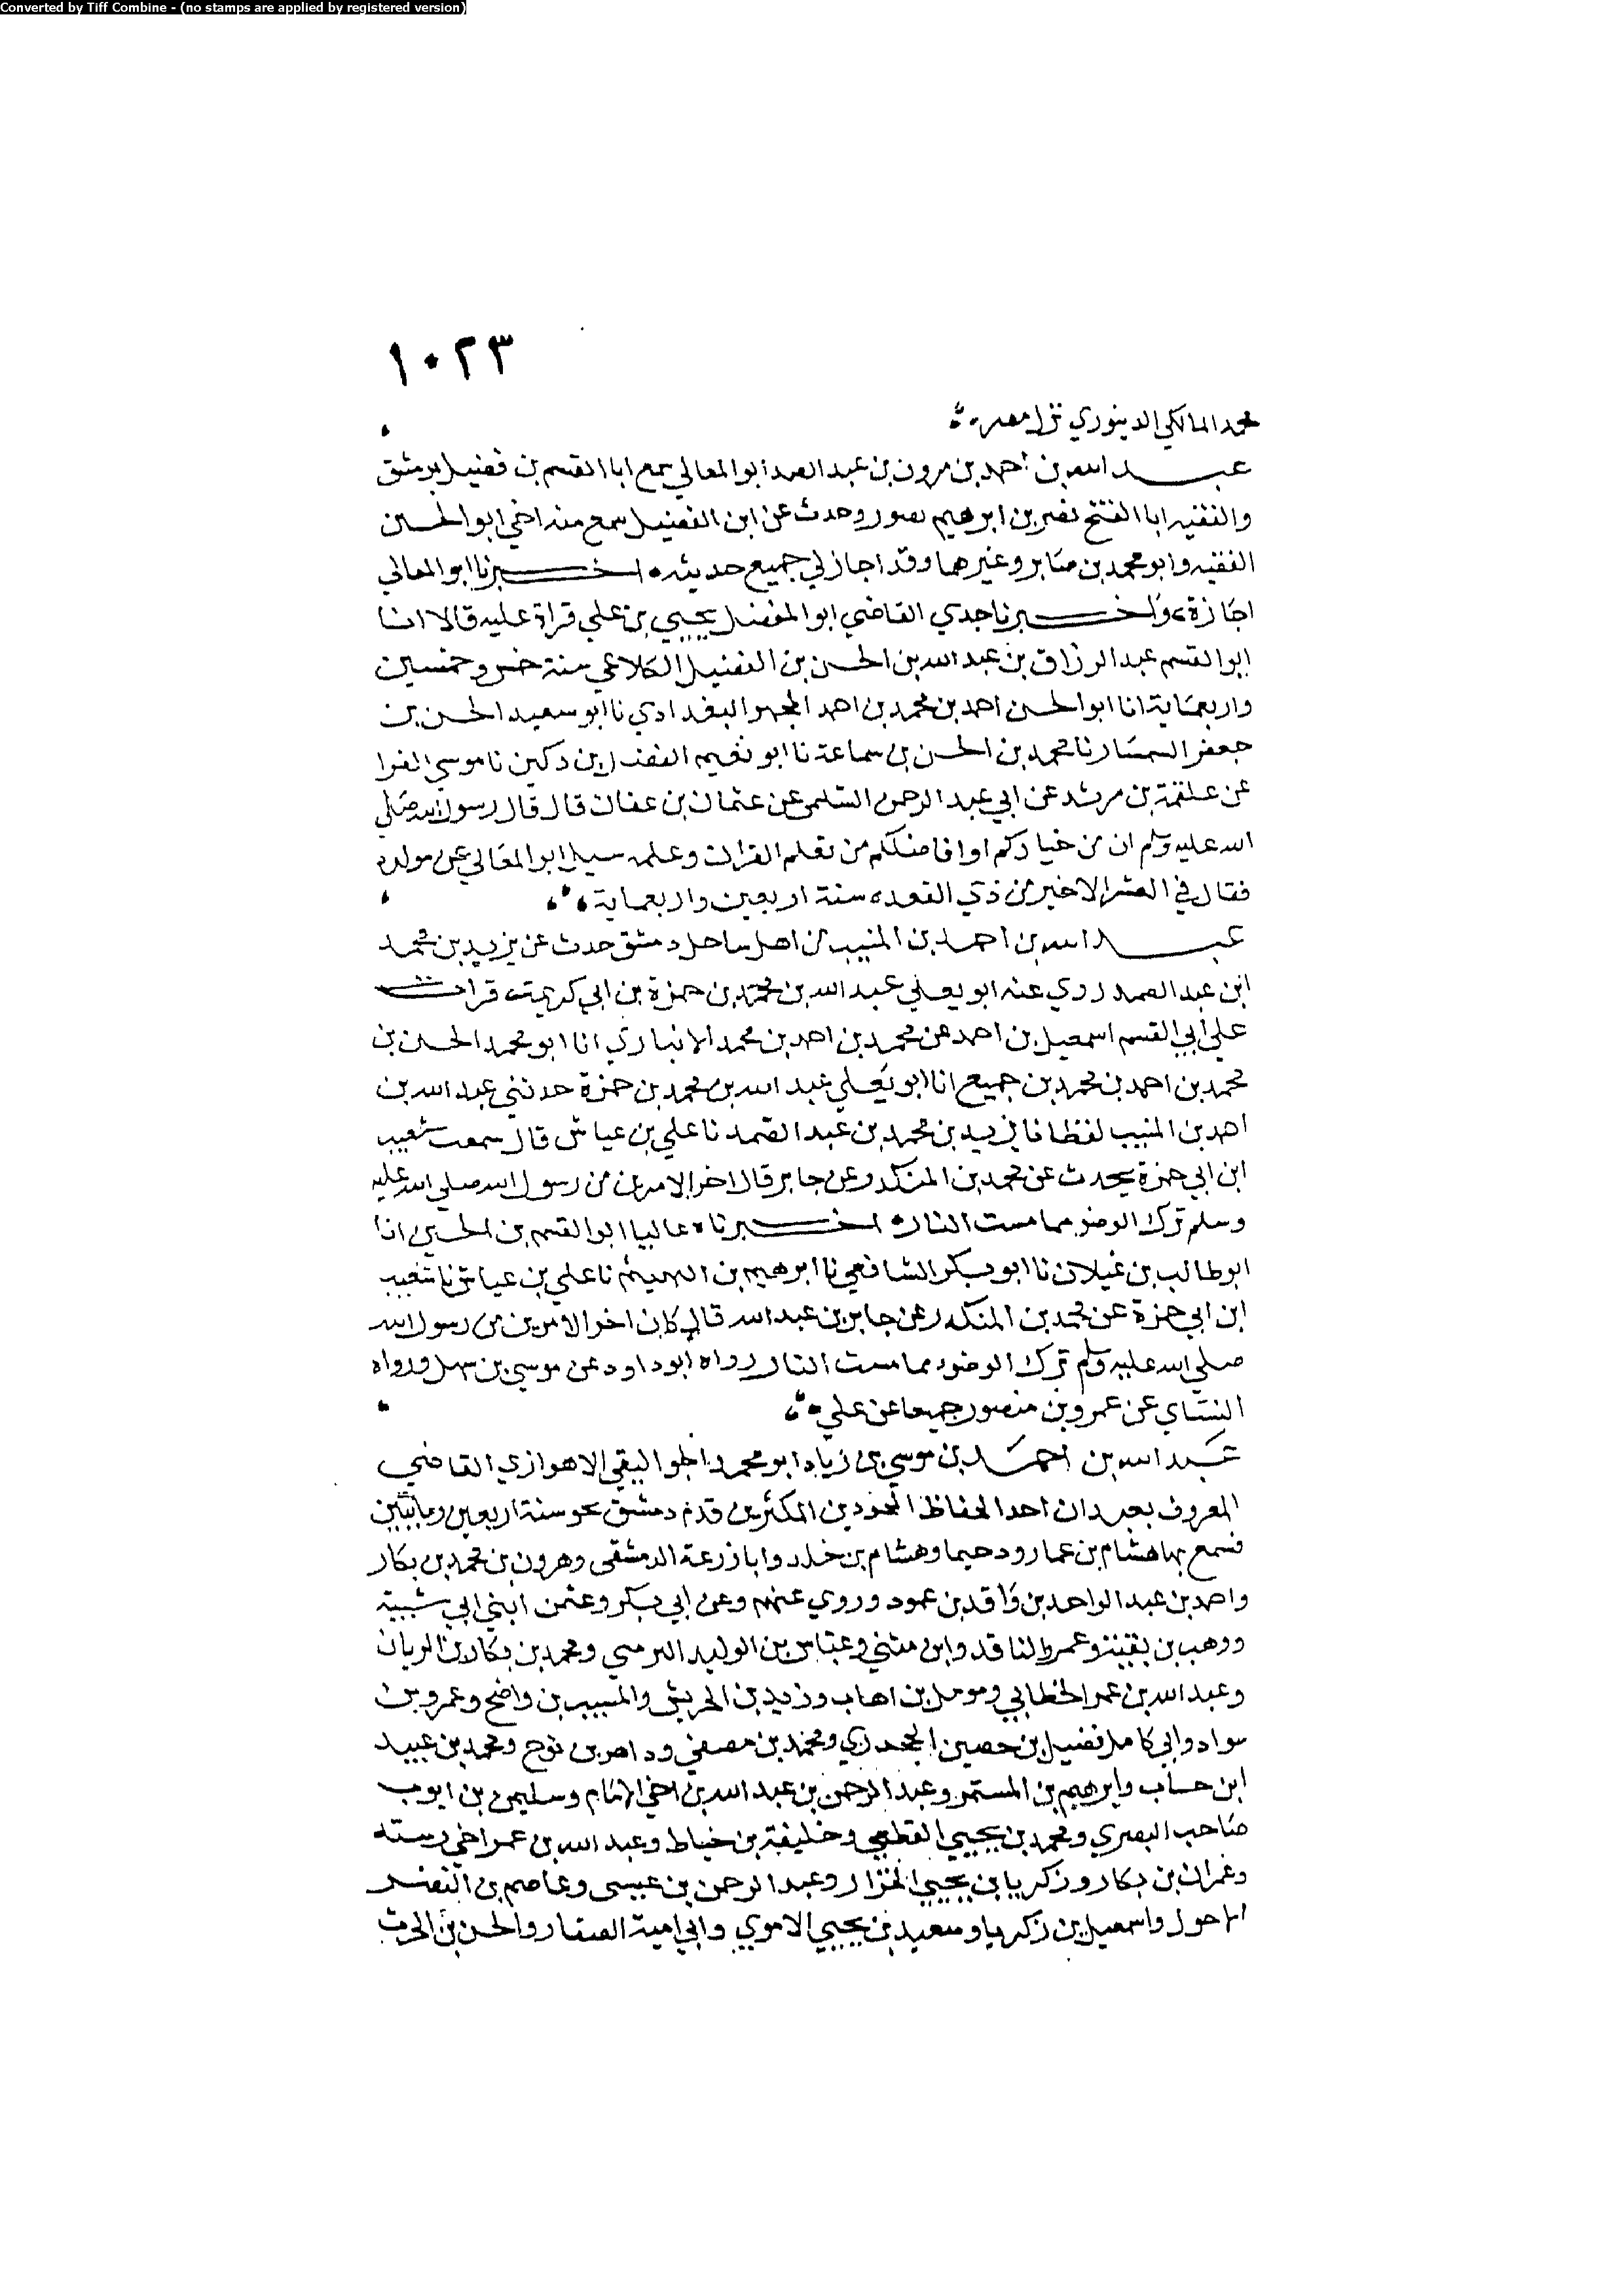 Converted by Tiff Combine - (no stamps are applied by registered version)
١٠٢٣
محمد المالكي الدينوري نزل مصر
عبد الله بن احمد بن مرون بن عبد الصمد ابو المعالي سمع ابا القسم بن فضيل بدمشق
والفقيه ابا الفتح نصر بن ابرهيم بصور وحدث عن ابن الفضيل سمع منه اخي ابو الحسين
الفقيه وابو محمد بن صابر وغيرهما وقد اجاز لي جميع حديثه اخبرنا ابو المعالي
اجازة واخبرنا جدي القاضي ابو المفضل يحيي بن علي قراة عليه قالا انا
ابو القسم عبد الرزاق بن عبد الله بن الحسن بن الفضيل الكلاعي سنة خمس وخمسين
واربعماية انا ابو الحسن احمد بن محمد بن احمد المجهر البغدادي نا ابو سعيد الحسن بن
جعفر السمسار نا محمد بن الحسن بن سماعة نا ابو نعيم الفضل بن دكين نا موسي الفرا
عن علقمة بن مرثد عن ابي عبد الرحمن السلمي عن عثمان بن عفان قال قال رسول الله صلي
الله عليه وسلم ان من خياركم او افاضلكم من تعلم القران وعلمه سيل ابو المعالي عن مولده
فقال في العشر الاخير من ذي القعده سنة اربعين واربعماية
عبد الله بن احمد بن المنيب من اهل ساحل دمشق حدث عن يزيد بن محمد
ابن عبد الصمد روي عنه ابو يعلي عبد الله بن محمد بن حمزة بن ابي كريمة قرات
علي ابي القسم اسمعيل بن احمد عن محمد بن احمد بن محمد الانباري انا ابو محمد الحسن بن
محمد بن احمد بن محمد بن جميع انا ابو يعلي عبد الله بن محمد بن حمزة حدثني عبد الله بن
احمد بن المنيب لفظا نا يزيد بن محمد بن عبد الصمد نا علي بن عياش قال سمعت شعيب
ابن ابي حمزة يحدث عن محمد بن المنكدر عن جابر قال اخر الامرين من رسول الله صلي الله عليه
وسلم ترك الوضو مما مست النار اخبرناه عاليا ابو القسم بن الحصين انا
ابو طالب بن غيلان نا ابو بكر الشافعي نا ابرهيم بن الهيثم نا علي بن عياش نا شعيب
ابن ابي حمزة عن محمد بن المنكدر عن جابر بن عبد الله قال كان اخر الامرين من رسول الله
صلي الله عليه وسلم ترك الوضوء مما مست النار رواه ابو داود عن موسي بن سهل ورواه
النساي عن عمرو بن منصور جميعا عن علي
عبد الله بن احمد بن موسي بن زياد ابو محمد الجواليقي الاهوازي القاضي
المعروف بعبدان احد الحفاظ المجودين المكثرين قدم دمشق نحو سنة اربعين ومايتين
فسمع بها هشام بن عمار ودحيما وهشام بن خلد وابا زرعة الدمشقي وهرون بن محمد بن بكار
واحمد بن عبد الواحد بن واقد بن عبود وروي عنهم وعن ابي بكر وعثمن ابني ابي شيبة
ووهب بن بقية وعمرو الناقد وابن مثني وعباس بن الوليد النرسي ومحمد بن بكار بن الريان
وعبد الله بن عمر الخطابي ومومل بن اهاب وزيد بن الحريش والمسيب بن واضح وعمرو بن
سواد وابي كامل فضيل بن حصين الجحدري ومحمد بن مصفي وداهر بن نوح ومحمد بن عبيد
ابن حساب وابرهيم بن المستمر وعبد الرحمن بن عبد الله بن اخي الامام وسليمن بن ايوب
صاحب البصري ومحمد بن يحيي القطعي وخليفة بن خياط وعبد الله بن عمر اخي رسته
وعمران بن بكار وزكريا بن يحيي الخزاز وعبد الرحمن بن عيسي وعاصم بن النضر
الاحول واسمعيل بن زكريا وسعيد بن يحيي الاموي وابي امية الصفار والحسن بن الحرث